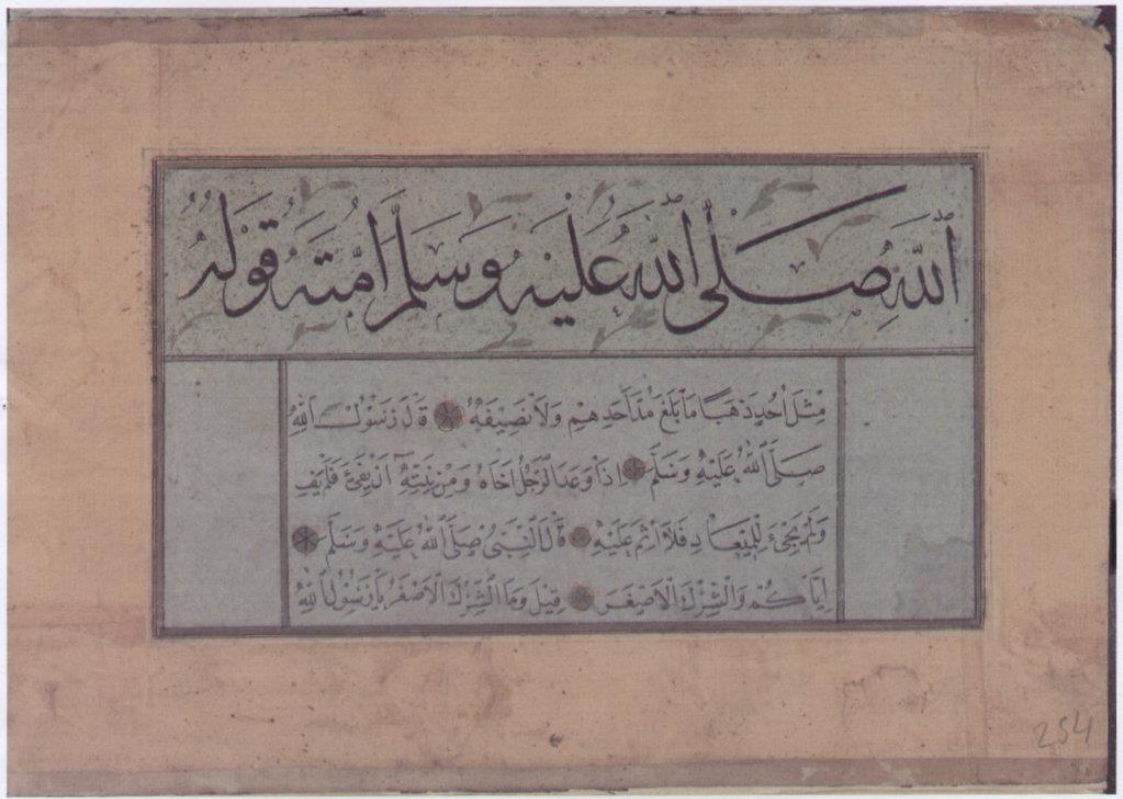 اللَّهِ صَلَّى اللَّهُ عَلَيْهِ وَسَلَّمَ امَّتَهُ قَوْلُهُ
مِثْلَ اُحُدٍ ذَهَبًا مَا بَلَغَ مُدَّ اَحَدِهِمْ وَلَا نَصِيفَهُ قَالَ رَسُولُ اللَّهِ
صَلَّى اللَّهُ عَلَيْهِ وَسَلَّمَ اِذَا وَعَدَ الرَّجُلُ اَخَاهُ وَمِنْ نِيَّتِهِ اَنْ يَفِىَ فَلَمْ يَفِ
وَلَمْ يَجِئْ لِلْمِيعَادِ فَلَا اِثْمَ عَلَيْهِ قَالَ النَّبِىُّ صَلَّى اللَّهُ عَلَيْهِ وَسَلَّمَ
اِيَّاكُمْ وَالشِّرْكَ الْاَصْغَرَ قِيلَ وَمَا الشِّرْكُ الْاَصْغَرُ يَا رَسُولَ اللَّهِ
254